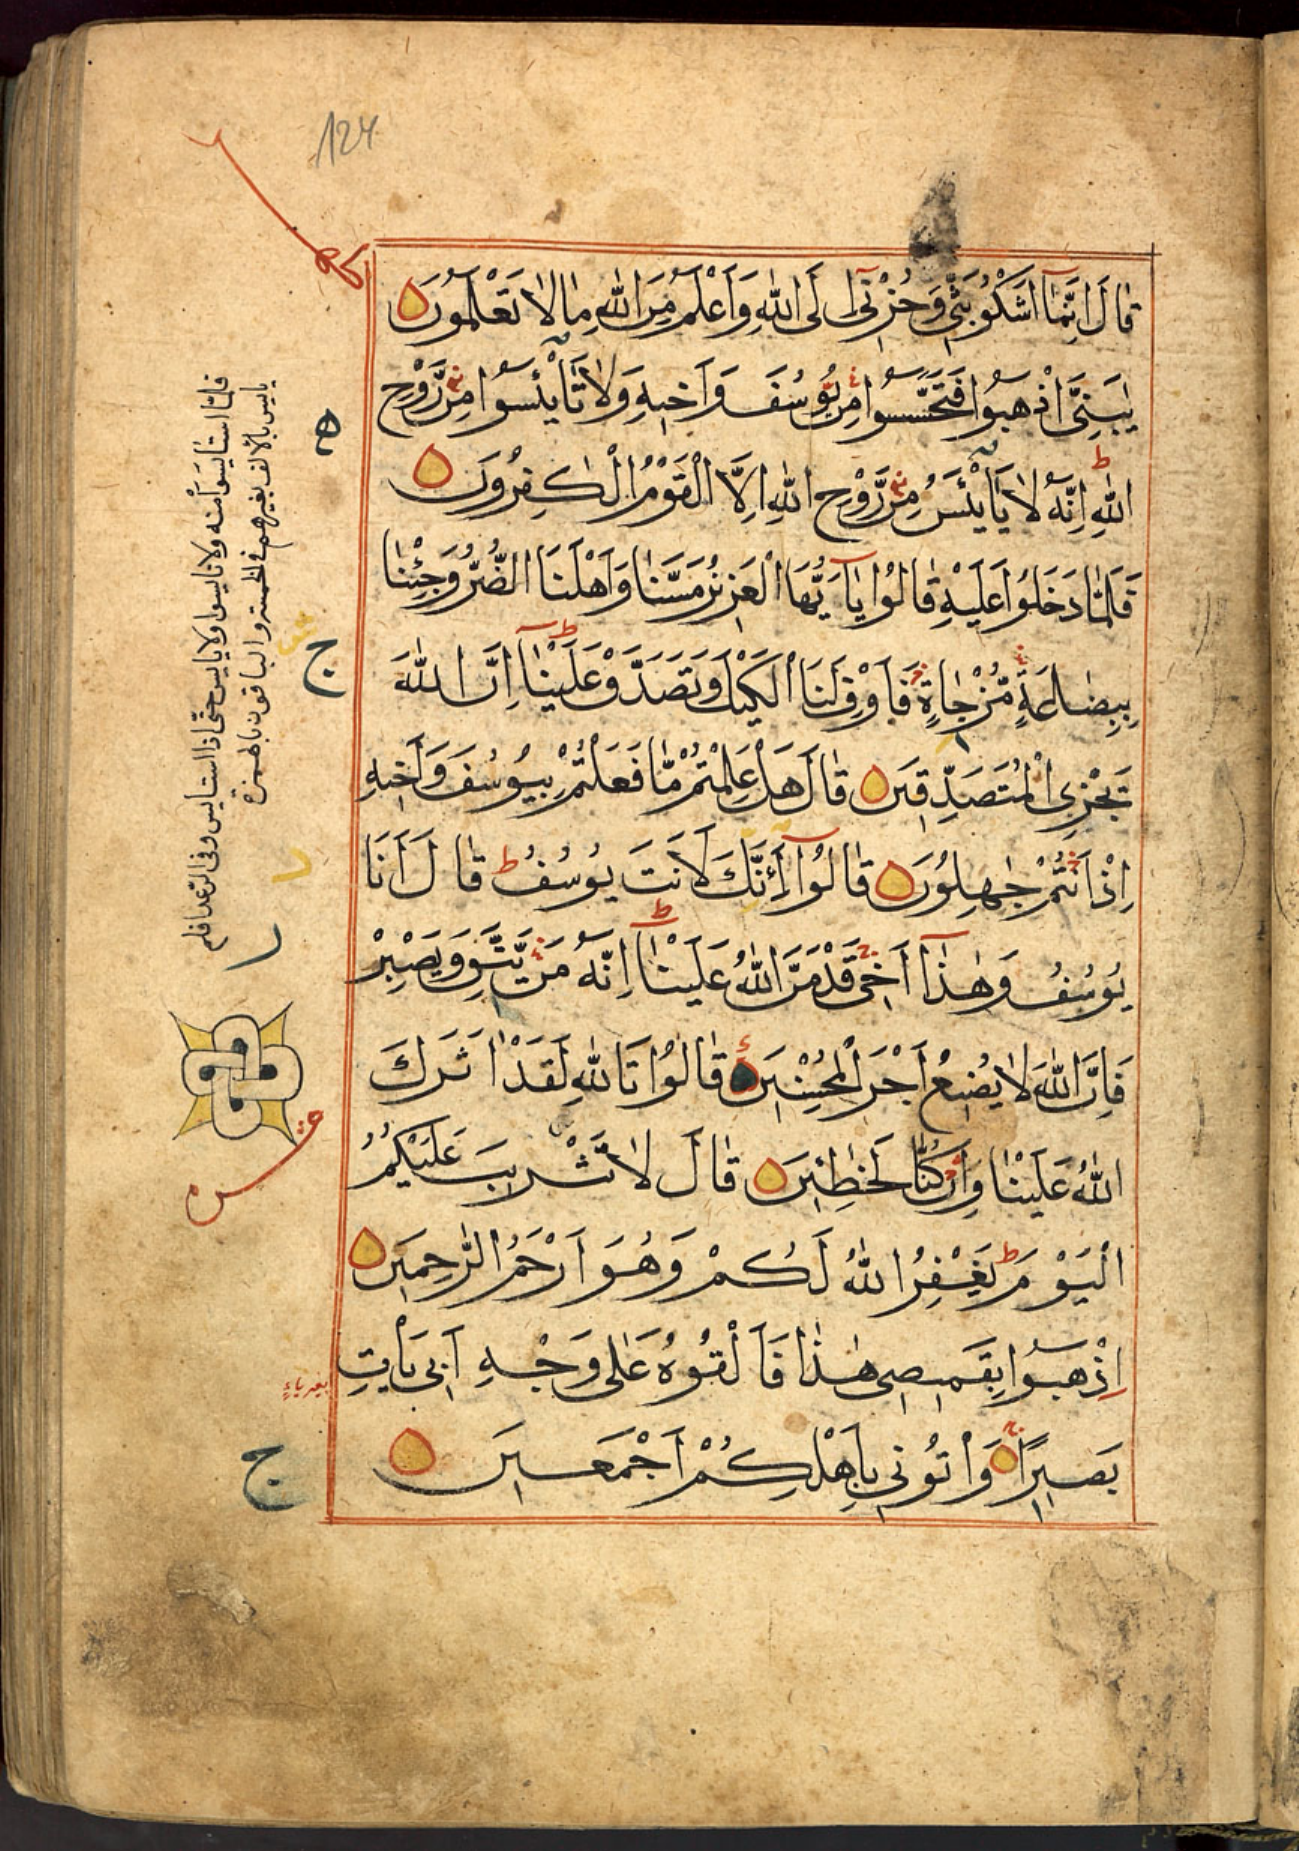 124
قَالَ اِنَّمَآ اَشْكُوْا بَثِّيْ وَحُزْنِيْٓ اِلَى اللّٰهِ وَاَعْلَمُ مِنَ اللّٰهِ مَا لَا تَعْلَمُوْنَ
يٰبَنِيَّ اذْهَبُوْا فَتَحَسَّسُوْا مِنْ يُّوْسُفَ وَاَخِيْهِ وَلَا تَاْيْئَسُوْا مِنْ رَّوْحِ
اللّٰهِ ط اِنَّهٗ لَا يَاْيْئَسُ مِنْ رَّوْحِ اللّٰهِ اِلَّا الْقَوْمُ الْكٰفِرُوْنَ
فَلَمَّا دَخَلُوْا عَلَيْهِ قَالُوْا يٰٓاَيُّهَا الْعَزِيْزُ مَسَّنَا وَاَهْلَنَا الضُّرُّ وَجِئْنَا
بِبِضَاعَةٍ مُّزْجٰاةٍ فَاَوْفِ لَنَا الْكَيْلَ وَتَصَدَّقْ عَلَيْنَا ط اِنَّ اللّٰهَ
يَجْزِي الْمُتَصَدِّقِيْنَ قَالَ هَلْ عَلِمْتُمْ مَّا فَعَلْتُمْ بِيُوْسُفَ وَاَخِيْهِ
اِذْ اَنْتُمْ جٰهِلُوْنَ قَالُوْٓا ءَاِنَّكَ لَاَنْتَ يُوْسُفُ ط قَالَ اَنَا
يُوْسُفُ وَهٰذَآ اَخِيْ قَدْ مَنَّ اللّٰهُ عَلَيْنَا ط اِنَّهٗ مَنْ يَّتَّقِ وَيَصْبِرْ
فَاِنَّ اللّٰهَ لَا يُضِيْعُ اَجْرَ الْمُحْسِنِيْنَ قَالُوْا تَاللّٰهِ لَقَدْ اٰثَرَكَ
اللّٰهُ عَلَيْنَا وَاِنْ كُنَّا لَخٰطِئِيْنَ قَالَ لَا تَثْرِيْبَ عَلَيْكُمُ
الْيَوْمَ ط يَغْفِرُ اللّٰهُ لَكُمْ وَهُوَ اَرْحَمُ الرّٰحِمِيْنَ
اِذْهَبُوْا بِقَمِيْصِيْ هٰذَا فَاَلْقُوْهُ عَلٰى وَجْهِ اَبِيْ يَاْتِ
بَصِيْرًا ج وَاْتُوْنِيْ بِاَهْلِكُمْ اَجْمَعِيْنَ
فلما استايسوا منه ولا تايسوا ولا يايس حتى اذا استايس وفى الرعد افلم
يايس بالالف بغير همز فى الخمسة والباقون بالهمزة
ه
ج
ج